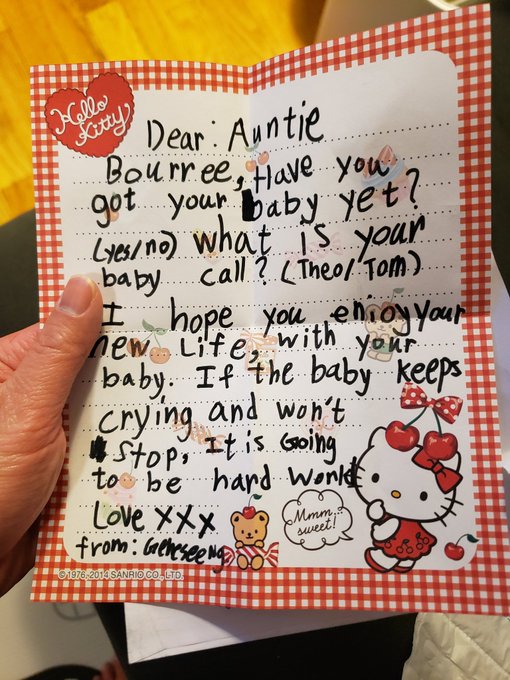 Hello
Kitty
Dear: Auntie
Bourree, Have you
got your baby yet?
(yes/no) what is your
baby call? (Theo/Tom)
I hope you enjoy your
new Life, with your
baby. If the baby keeps
crying and won't
stop, It is Going
to be hard work
Love xxx
from:
Mmm...
sweet!
© 1976, 2014 SANRIO CO., LTD.